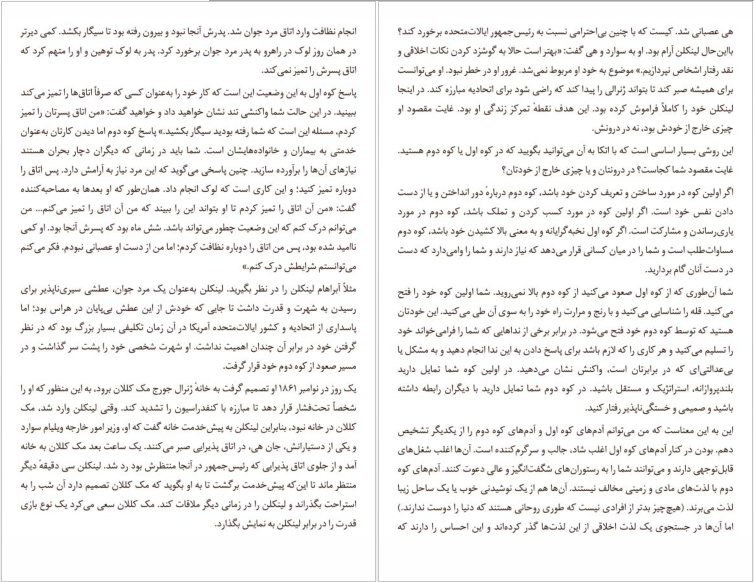 انجام نظافت وارد اتاق مرد جوان شد. پدرش آنجا نبود و بیرون رفته بود تا سیگار بکشد. کمی دیرتر
در همان روز لوک در راهرو به پدر مرد جوان برخورد کرد. پدر به لوک توهین و او را متهم کرد که
اتاق پسرش را تمیز نمی‌کند.
پاسخ کوه اول به این وضعیت این است که کار خود را به‌عنوان کسی که صرفاً اتاق‌ها را تمیز می‌کند
ببینید. در این حالت شما واکنشی تند نشان خواهید داد و خواهید گفت: «من اتاق پسرتان را تمیز
کردم، مسئله این است که شما رفته بودید سیگار بکشید.» پاسخ کوه دوم اما دیدن کارتان به‌عنوان
خدمتی به بیماران و خانواده‌هایشان است. شما باید در زمانی که دیگران دچار بحران هستند
نیازهای آن‌ها را برآورده سازید. چنین پاسخی می‌گوید که این مرد نیاز به آرامش دارد. پس اتاق را
دوباره تمیز کنید؛ و این کاری است که لوک انجام داد. همان‌طور که او بعدها به مصاحبه‌کننده
گفت: «من آن اتاق را تمیز کردم تا او بتواند این را ببیند که من آن اتاق را تمیز می‌کنم... من
می‌توانم درک کنم که این وضعیت چطور می‌تواند باشد. شش ماه بود که پسرش آنجا بود. او کمی
ناامید شده بود، پس من اتاق را دوباره نظافت کردم؛ اما من از دست او عصبانی نبودم. فکر می‌کنم
می‌توانستم شرایطش درک کنم.»
مثلاً آبراهام لینکلن را در نظر بگیرید. لینکلن به‌عنوان یک مرد جوان، عطشی سیری‌ناپذیر برای
رسیدن به شهرت و قدرت داشت تا جایی که خودش از این عطش بی‌پایان در هراس بود؛ اما
پاسداری از اتحادیه و کشور ایالات‌متحده آمریکا در آن زمان تکلیفی بسیار بزرگ بود که در نظر
گرفتن خود در برابر آن چندان اهمیت نداشت. او شهرت شخصی خود را پشت سر گذاشت و در
مسیر صعود از کوه دوم خود قرار گرفت.
یک روز در نوامبر ۱۸۶۱ او تصمیم گرفت به خانهٔ ژنرال جورج مک کللان برود، به این منظور که او را
شخصاً تحت‌فشار قرار دهد تا مبارزه با کنفدراسیون را تشدید کند. وقتی لینکلن وارد شد، مک
کللان در خانه نبود، بنابراین لینکلن به پیش‌خدمت خانه گفت که او، وزیر امور خارجه ویلیام سوارد
و یکی از دستیارانش، جان هی، در اتاق پذیرایی صبر می‌کنند. یک ساعت بعد مک کللان به خانه
آمد و از جلوی اتاق پذیرایی که رئیس‌جمهور در آنجا منتظرش بود رد شد. لینکلن سی دقیقهٔ دیگر
منتظر ماند تا این‌که پیش‌خدمت برگشت تا به او بگوید که مک کللان تصمیم دارد آن شب را به
استراحت بگذراند و لینکلن را در زمانی دیگر ملاقات کند. مک کللان سعی می‌کرد یک نوع بازی
قدرت را در برابر لینکلن به نمایش بگذارد.
هی عصبانی شد. کیست که با چنین بی‌احترامی نسبت به رئیس‌جمهور ایالات‌متحده برخورد کند؟
بااین‌حال لینکلن آرام بود. او به سوارد و هی گفت: «بهتر است حالا به گوشزد کردن نکات اخلاقی و
نقد رفتار اشخاص نپردازیم.» موضوع به خود او مربوط نمی‌شد. غرور او در خطر نبود. او می‌توانست
برای همیشه صبر کند تا بتواند ژنرالی را پیدا کند که راضی شود برای اتحادیه مبارزه کند. در اینجا
لینکلن خود را کاملاً فراموش کرده بود. این هدف نقطهٔ تمرکز زندگی او بود. غایت مقصود او
چیزی خارج از خودش بود، نه در درونش.
این روشی بسیار اساسی است که با اتکا به آن می‌توانید بگویید که در کوه اول یا کوه دوم هستید.
غایت مقصود شما کجاست؟ در درونتان و یا چیزی خارج از خودتان؟
اگر اولین کوه در مورد ساختن و تعریف کردن خود باشد، کوه دوم دربارهٔ دور انداختن و یا از دست
دادن نفس خود است. اگر اولین کوه در مورد کسب کردن و تملک باشد، کوه دوم در مورد
یاری‌رساندن و مشارکت است. اگر کوه اول نخبه‌گرایانه و به معنی بالا کشیدن خود باشد، کوه دوم
مساوات‌طلب است و شما را در میان کسانی قرار می‌دهد که نیاز دارند و شما را وامی‌دارد که دست
در دست آنان گام بردارید.
شما آن‌طوری که از کوه اول صعود می‌کنید از کوه دوم بالا نمی‌روید. شما اولین کوه خود را فتح
می‌کنید. قله را شناسایی می‌کنید و با رنج و مرارت راه خود را به سوی آن طی می‌کنید. این خودتان
هستید که توسط کوه دوم خود فتح می‌شود. در برابر برخی از نداهایی که شما را فرامی‌خواند خود
را تسلیم می‌کنید و هر کاری را که لازم باشد برای پاسخ دادن به این ندا انجام دهید و به مشکل یا
بی‌عدالتی‌ای که در برابرتان است، واکنش نشان می‌دهید. در اولین کوه شما تمایل دارید
بلندپروازانه، استراتژیک و مستقل باشید. در کوه دوم شما تمایل دارید با دیگران رابطه داشته
باشید و صمیمی و خستگی‌ناپذیر رفتار کنید.
این به این معناست که من می‌توانم آدم‌های کوه اول و آدم‌های کوه دوم را از یکدیگر تشخیص
دهم. بودن در کنار آدم‌های کوه اول اغلب شاد، جالب و سرگرم‌کننده است. آن‌ها اغلب شغل‌های
قابل‌توجهی دارند و می‌توانند شما را به رستوران‌های شگفت‌انگیز و عالی دعوت کنند. آدم‌های کوه
دوم با لذت‌های مادی و زمینی مخالف نیستند. آن‌ها هم از یک نوشیدنی خوب یا یک ساحل زیبا
لذت می‌برند. (هیچ‌چیز بدتر از افرادی نیست که طوری روحانی هستند که دنیا را دوست ندارند.)
اما آن‌ها در جستجوی یک لذت اخلاقی از این لذت‌ها گذر کرده‌اند و این احساس را دارند که